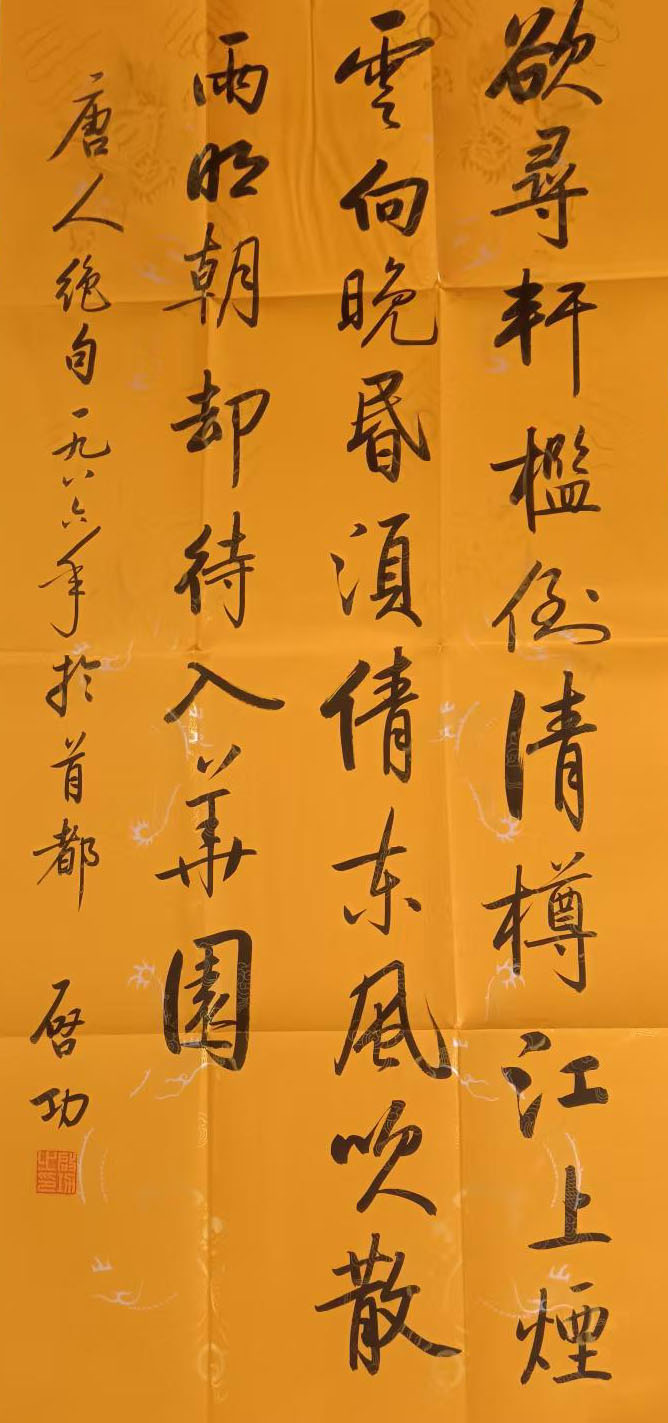 欲尋軒檻倒清樽江上煙
雲向晚昏須倩东風吹散
雨明朝却待入華園
唐人绝句一九八六年於首都
启功